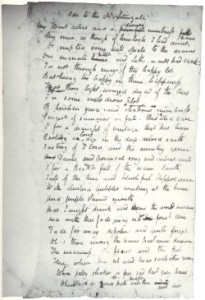 Ode to the Nightingale
My Heart aches and a numbness falls
My sense as though of hemlock I had drunk
Or emptied some dull opiate to the drains
One minute since and Lethe-wards had sunk
Tis not through envy of thy happy lot
But being too happy in thine happiness
That thou light winged dryad of the trees
In some melodious plot
Of beechen green and shadows numberless
Singest of summer in full-throated ease
O for a draught of vintage that has been
Cooling an age in the deep delved earth
Tasting of Flora and the country green
And Dance, and provencal song and sunburnt mirth
O for a Beaker full of the warm South
Full of the true and blushful Hippocrene
With cluster'd bubbles winking at the brim
And purple stained mouth
That I might drink and leave the world unseen
And with thee fade away
Fade far away dissolve and quite forget
What thou among the leaves hast never known
The weariness the fever and the fret
Here, where Men sit and hear each other groan
Where palsy shakes a few sad last grey hairs
Where youth grows pale and thin and